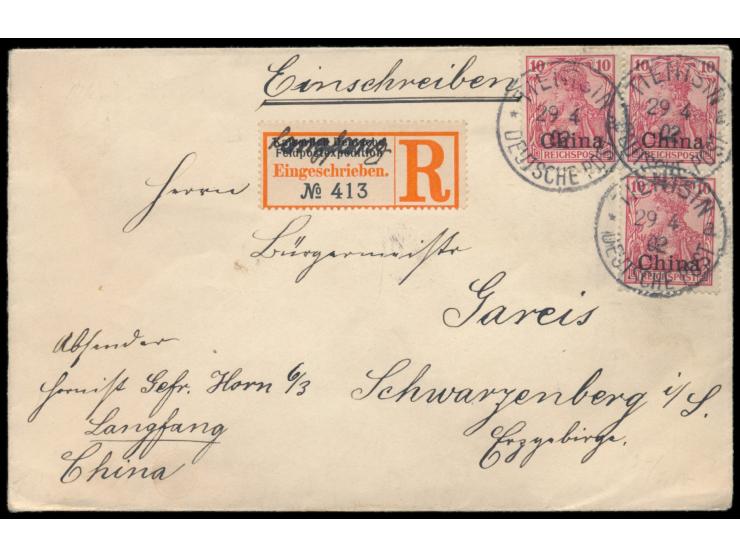 Einschreiben.
10 10
China
REICHSPOST
10 10
China
REICHSPOST
10 10
China
REICHSPOST
TIENTSIN
29 4
02
DEUTSCHE
TIENTSIN a
29 4
02
TIENTSIN a
29 4
02
DEUTSCHE
Langfang
Feldpostexpedition
Eingeschrieben.
№ 413
R
Herrn
Bürgermeister
Gareis
Schwarzenberg i/S.
Erzgebirge.
Absender
Hornist Gefr. Horn 6/3
Langfang
China